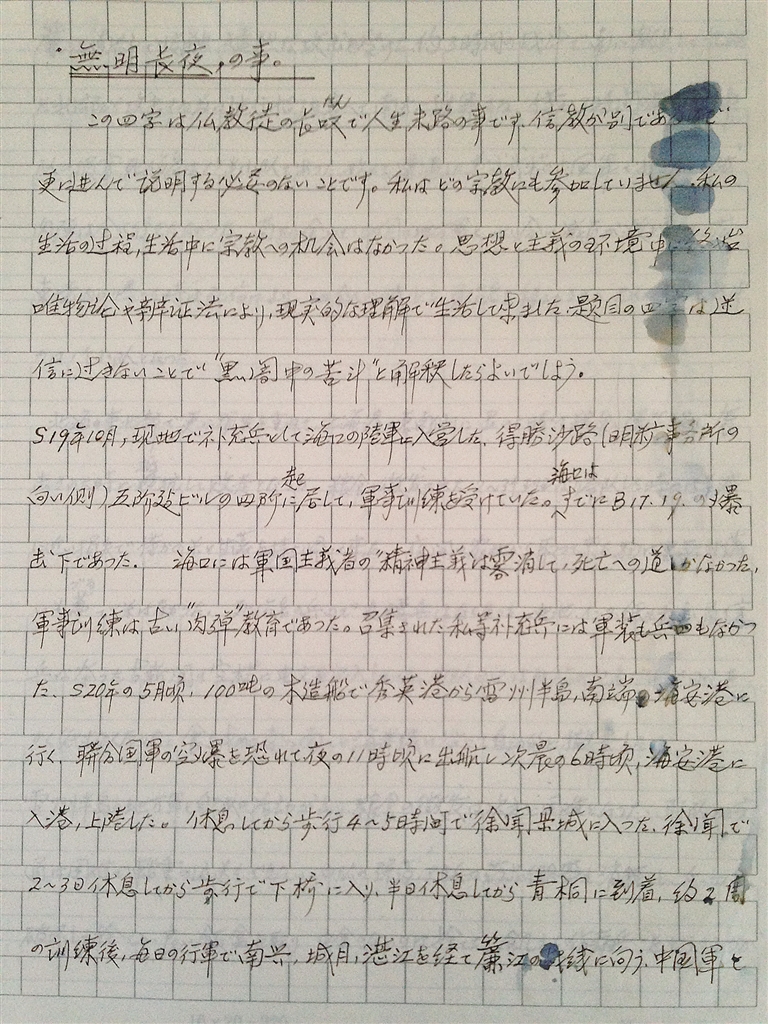 ・無明長夜,の事。
この四字は仏教徒の長叹たんで人生末路の事です,信教が別であ
更に进んで説明する必要のないことです。私はどの宗教にも参加していません,私の
生活の过程,生活中に宗教への机会はなかった。思想と主義の环境中
唯物论や辩证法により,現実的な理解で生活して来ました,题目の四字は迷
信に过ぎないことで"黒い闇中の苦斗"と解釈したらよいでしょう。
S19年10月,現地で补充兵として海口の陸軍に入営した,得勝沙路(日 事務所の
向い側)五阶建ビルの四阶に起居して,軍事训練を受けていた。海口はすでにB17.19.の爆
击下であった. 海口には軍国主義者の"精神主義は雾消して,死亡への道しかなかった,
軍事训練は古い"肉弾"教育であった。召集された私等补充兵には軍装も兵器もなかっ
た、S20年の5月頃,100吨の木造船で秀英港から雷州半島,南端 海安港に
行く,聯合国軍の空爆を恐れて夜の11時頃に出航し次晨の6時頃,海安港に
入港,上陸した。休息してから歩行4~5時间で徐闻県城に入った,徐闻で
2~3日休息してから歩行で下桥に入り,半日休息してから青桐に到着,约2周
の训練後,毎日の行軍で南兴,城月,湛江を経て簾江の 线に向う,中国軍と